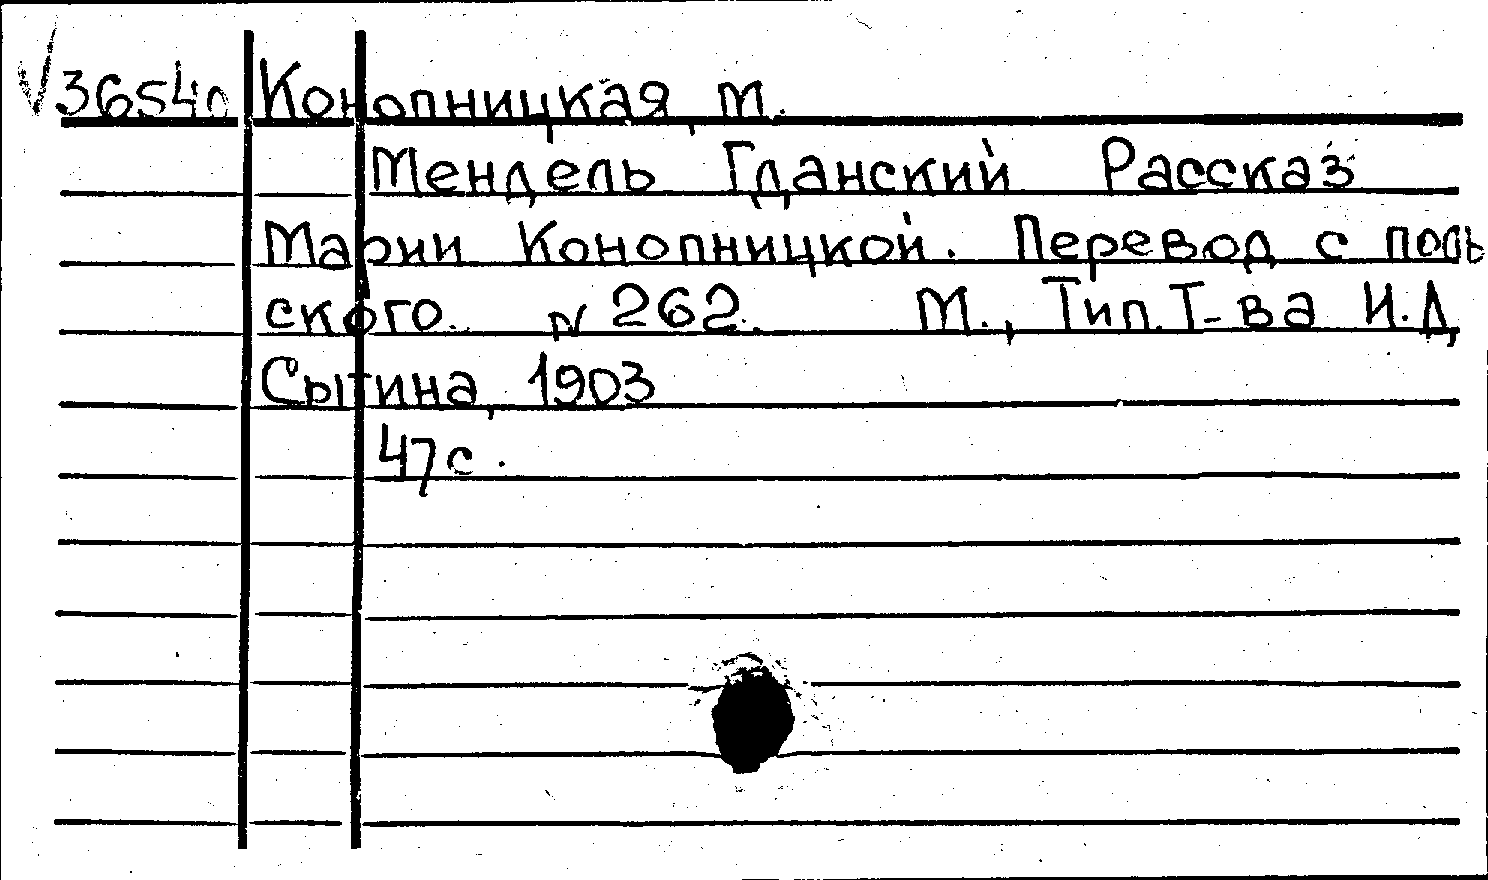 36540 Конопницкая, М.
Мендель Гданский Рассказ
Марии Конопницкой. Перевод с поль
ского. № 262. М., Тип. Т-ва И.Д.
Сытина, 1903
47 с.